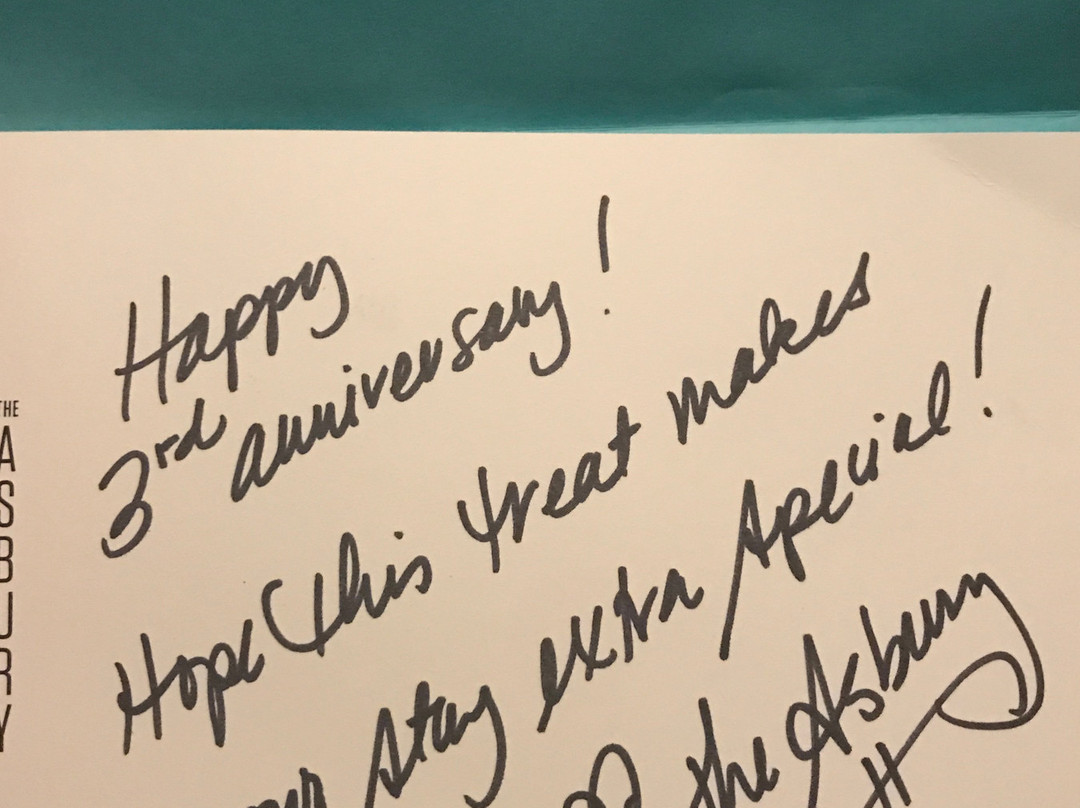 Happy
3rd anniversary!
Hope this treat makes
stay extra special!
the Asbury
THE
ASBURY